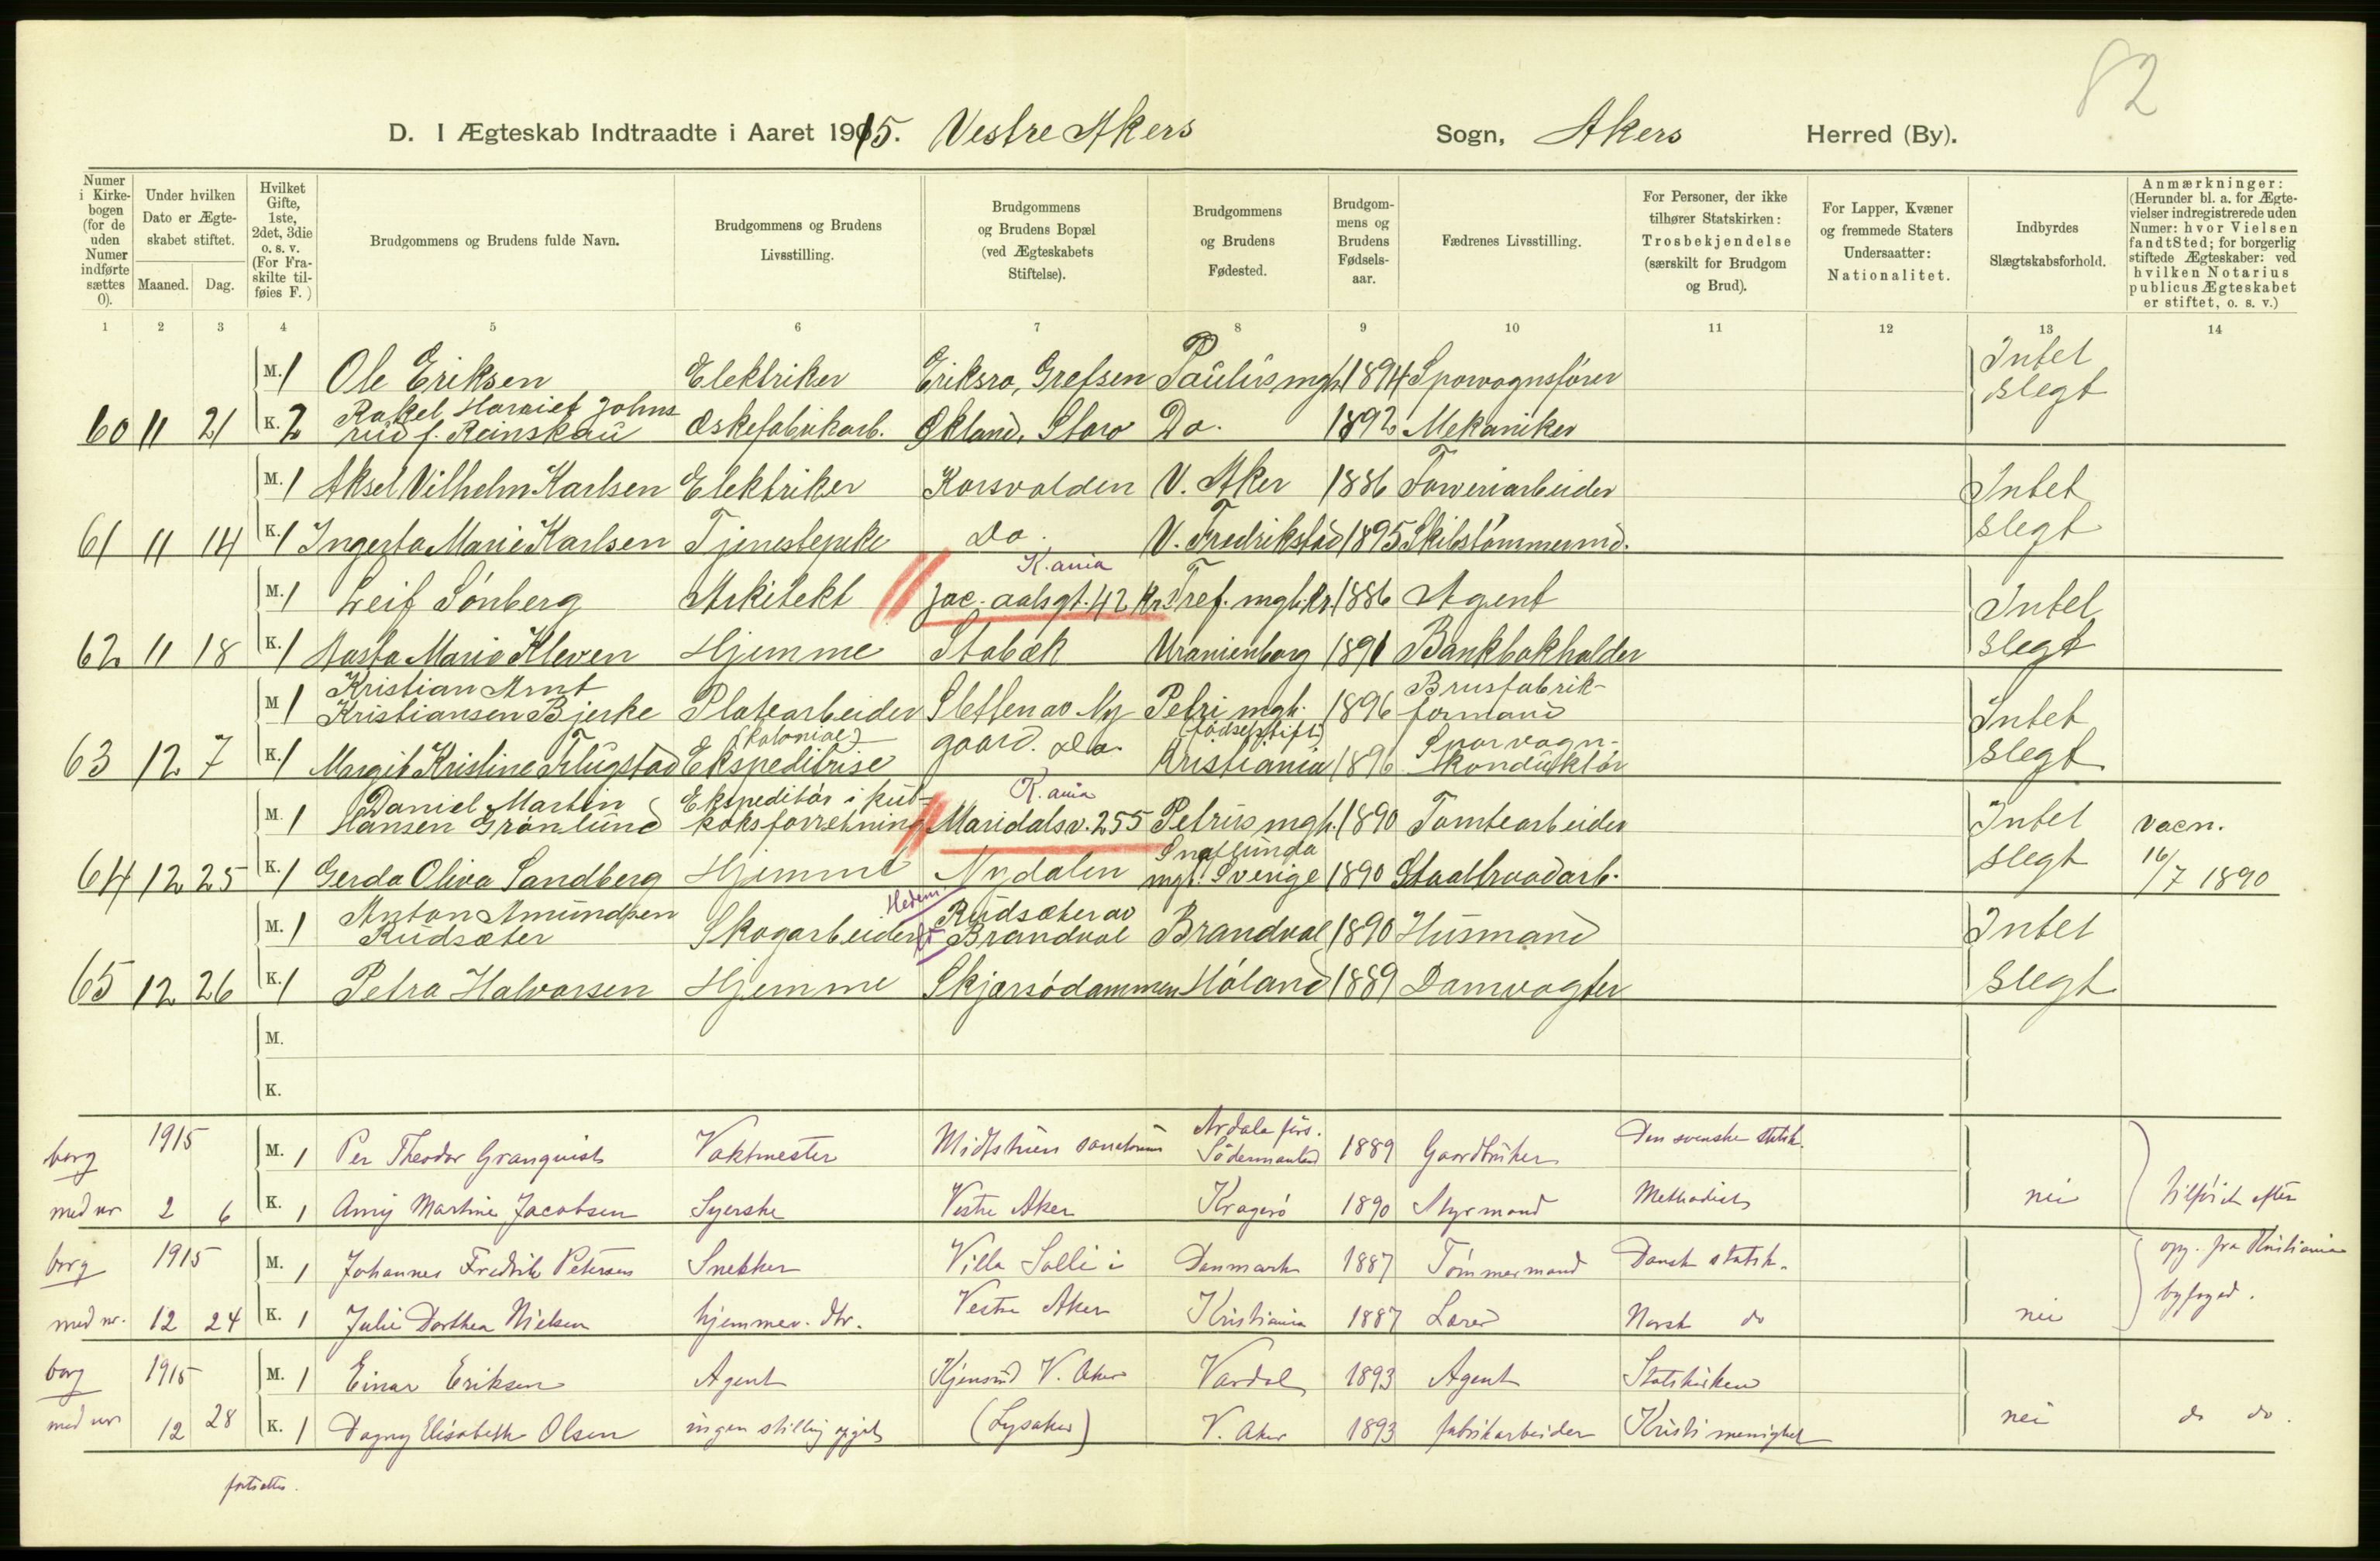 82
D. I Ægteskab Indtraadte i Aaret 1915. Vestre Akers Sogn, Akers Herred (By).
Numer i Kirkebogen (for de uden Numer indførte sættes 0).
Under hvilken Dato er Ægteskabet stiftet.
Maaned. Dag.
Hvilket Gifte, 1ste, 2det, 3die o. s. v. (For Fraskilte tilføies F.)
Brudgommens og Brudens fulde Navn.
Brudgommens og Brudens Livsstilling.
Brudgommens og Brudens Bopæl (ved Ægteskabets Stiftelse).
Brudgommens og Brudens Fødested.
Brudgommens og Brudens Fødselsaar.
Fædrenes Livsstilling.
For Personer, der ikke tilhører Statskirken: Trosbekjendelse (særskilt for Brudgom og Brud).
For Lapper, Kvæner og fremmede Staters Undersaatter: Nationalitet.
Indbyrdes Slægtskabsforhold.
Anmærkninger: (Herunder bl. a. for Ægtevielser indregistrerede uden Numer: hvor Vielsen fandt Sted; for borgerlig stiftede Ægteskaber: ved hvilken Notarius publicus Ægteskabet er stiftet, o. s. v.)
1 2 3 4 5 6 7 8 9 10 11 12 13 14
M. 1 Ole Eriksen Elektriker Eriksro, Grefsen Paulus mgh. 1894 Sporvognsfører Intet slegt
60 11 21 K. 2 Rakel Harriet Johnsrud f. Reinskau Æskefabrikarb. Økland, Storo Do. 1892 Mekaniker
M. 1 Aksel Vilhelm Karlsen Elektriker Korsvolden V. Aker 1886 Farveriarbeider Intet slegt
61 11 14 K. 1 Ingerta Marie Karlsen Tjenestepike Do. V. Fredrikstad 1895 Skibstømmermd.
K.ania
M. 1 Leif Sønberg Arkitekt Jac. aalsgt. 42 Kr. Tref. mgh. Kr. 1886 Agent Intet slegt
62 11 18 K. 1 Aasta Marie Kleven Hjemme Stabæk Uranienborg 1891 Bankbokholder
M 1 Kristian Arnt Kristiansen Bjerke Platearbeider Sletten av Ny Petri mgh. 1896 Brusfabrikformand Intet slegt
63 12 7 K. 1 Margit Kristine Flugstad (kolonial) Ekspeditrise gaard. Do. (fødselsstift) Kristiania 1896 Sporvognkonduktør
K.ania
M. 1 Daniel Martin Hansen Grønlund Ekspeditør i kul- koksforretning Maridalsv. 255 Petrus mgh. 1890 Tomtearbeider Intet slegt vacn. 16/7 1890
64 12 25 K. 1 Gerda Oliva Sandberg Hjemme Nydalen mgh. Sverige 1890 Staaltraadarb.
Hedem.
M. 1 Anton Amundsen Rudsæter Skogarbeider Rudsæter av Brandval Brandval 1890 Husmand Intet slegt
65 12 26 K. 1 Petra Halvorsen Hjemme Skjærsødammen Høland 1889 Damvogter
M.
K.
borg 1915 M. 1 Per Theodor Granquist Vaktmester Midtstuen sanatorium Ardala förs. Södermanland 1889 Gaardbruker Den svenske statsk.
med nr 2 6 K. 1 Amy Martine Jacobsen Syerske Vestre Aker Kragerø 1890 Styrmand Methodist nei tilføiet efter
borg 1915 M. 1 Johannes Fredrik Petersen Snekker Villa Solli i Danmark 1887 Tømmermand Dansk statsk. opg. fra Kristiania
med nr. 12 24 K. 1 Julie Dorthea Nielsen hjemmev. dtr. Vestre Aker Kristiania 1887 Lærer Norsk do nei byfoged.
borg 1915 M. 1 Einar Eriksen Agent Kjensrud V. Aker Vardal 1893 Agent Statskirken
med nr 12 28 K. 1 Dagny Elisabeth Olsen ingen stilling opgit (Lysaker) V. Aker 1893 fabrikarbeider Kristi menighet nei do do.
fortsættes.